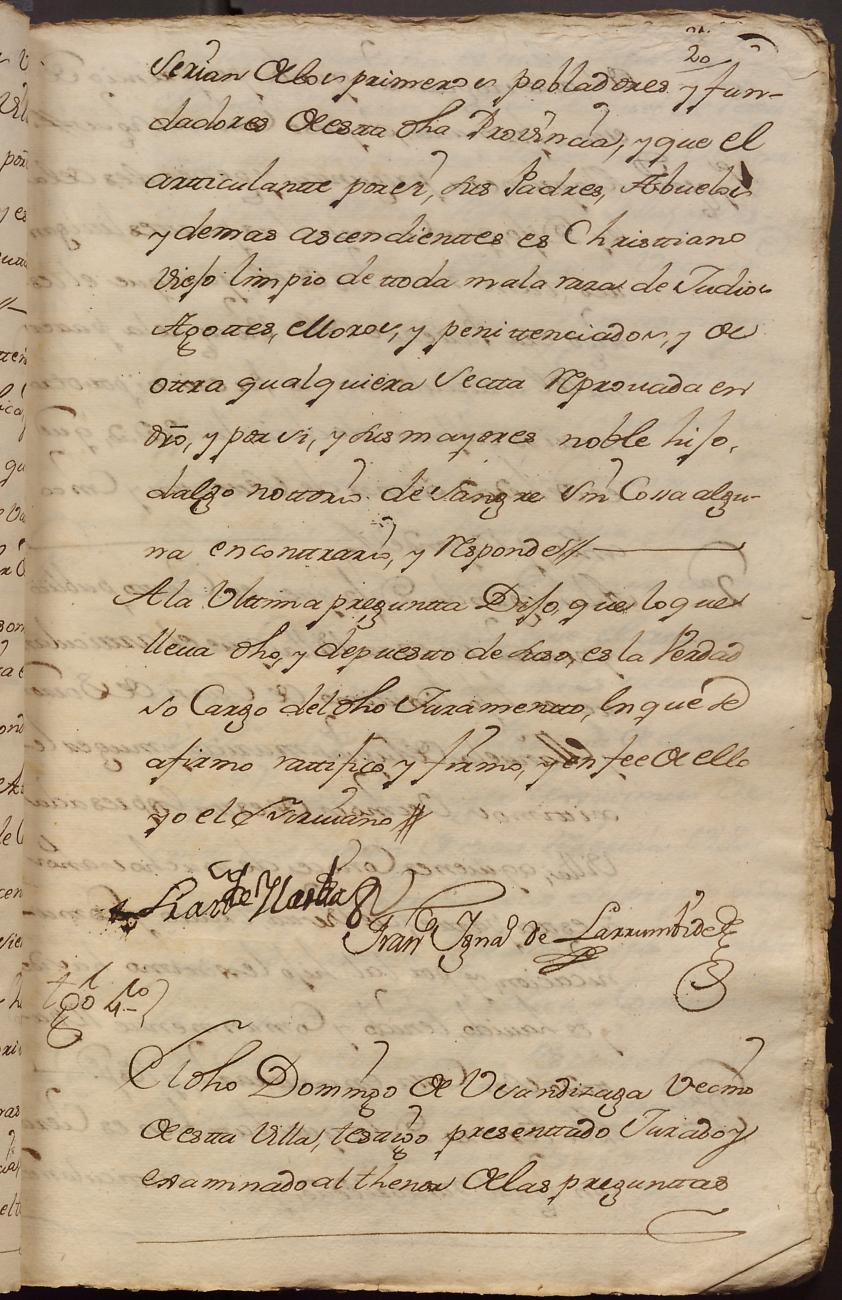 20
serian de los primeros pobladores y fun-
dadores de esta dha Provincia, y que el
articulante por si, sus Padres, Abuelos
y demas ascendienttes es Christtiano
Viejo limpio de ttoda mala raza de Judios
Agottes, Moros, y penittenciados, y de
ottra qualquiera Sectta Reprovada en
dro, y por si, y sus mayores noble hijo,
dalgo nottorio de Sangre sin Cossa algu-
na en conttrario, y Responde//
A la Ultima preguntta Dijo, que lo que
lleva dho, y depuestto de suso, es la Verdad
so Cargo del dho Juramentto, en que se
afirmo rattifico y firmo, y en fee de ello
yo el Escrivano //
Fran.co Ign.o de Larrumbide
t.go 4.to
El dho Domingo de Usandizaga vecino
de estta Villa, testigo presenttado Jurado y
examinado al thenor de las pregunttas